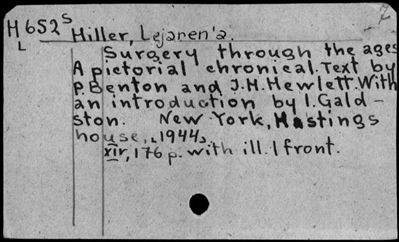 H652 S Hiller, Lejaren'a.
L
Surgery through the ages
A pictorial chronical. Text by
P. Benton and J.H. Hewlett. With
an introduction by I. Gald-
ston. New York, Hastings
house, 1944.
xiv, 176 p. with ill. 1 front.